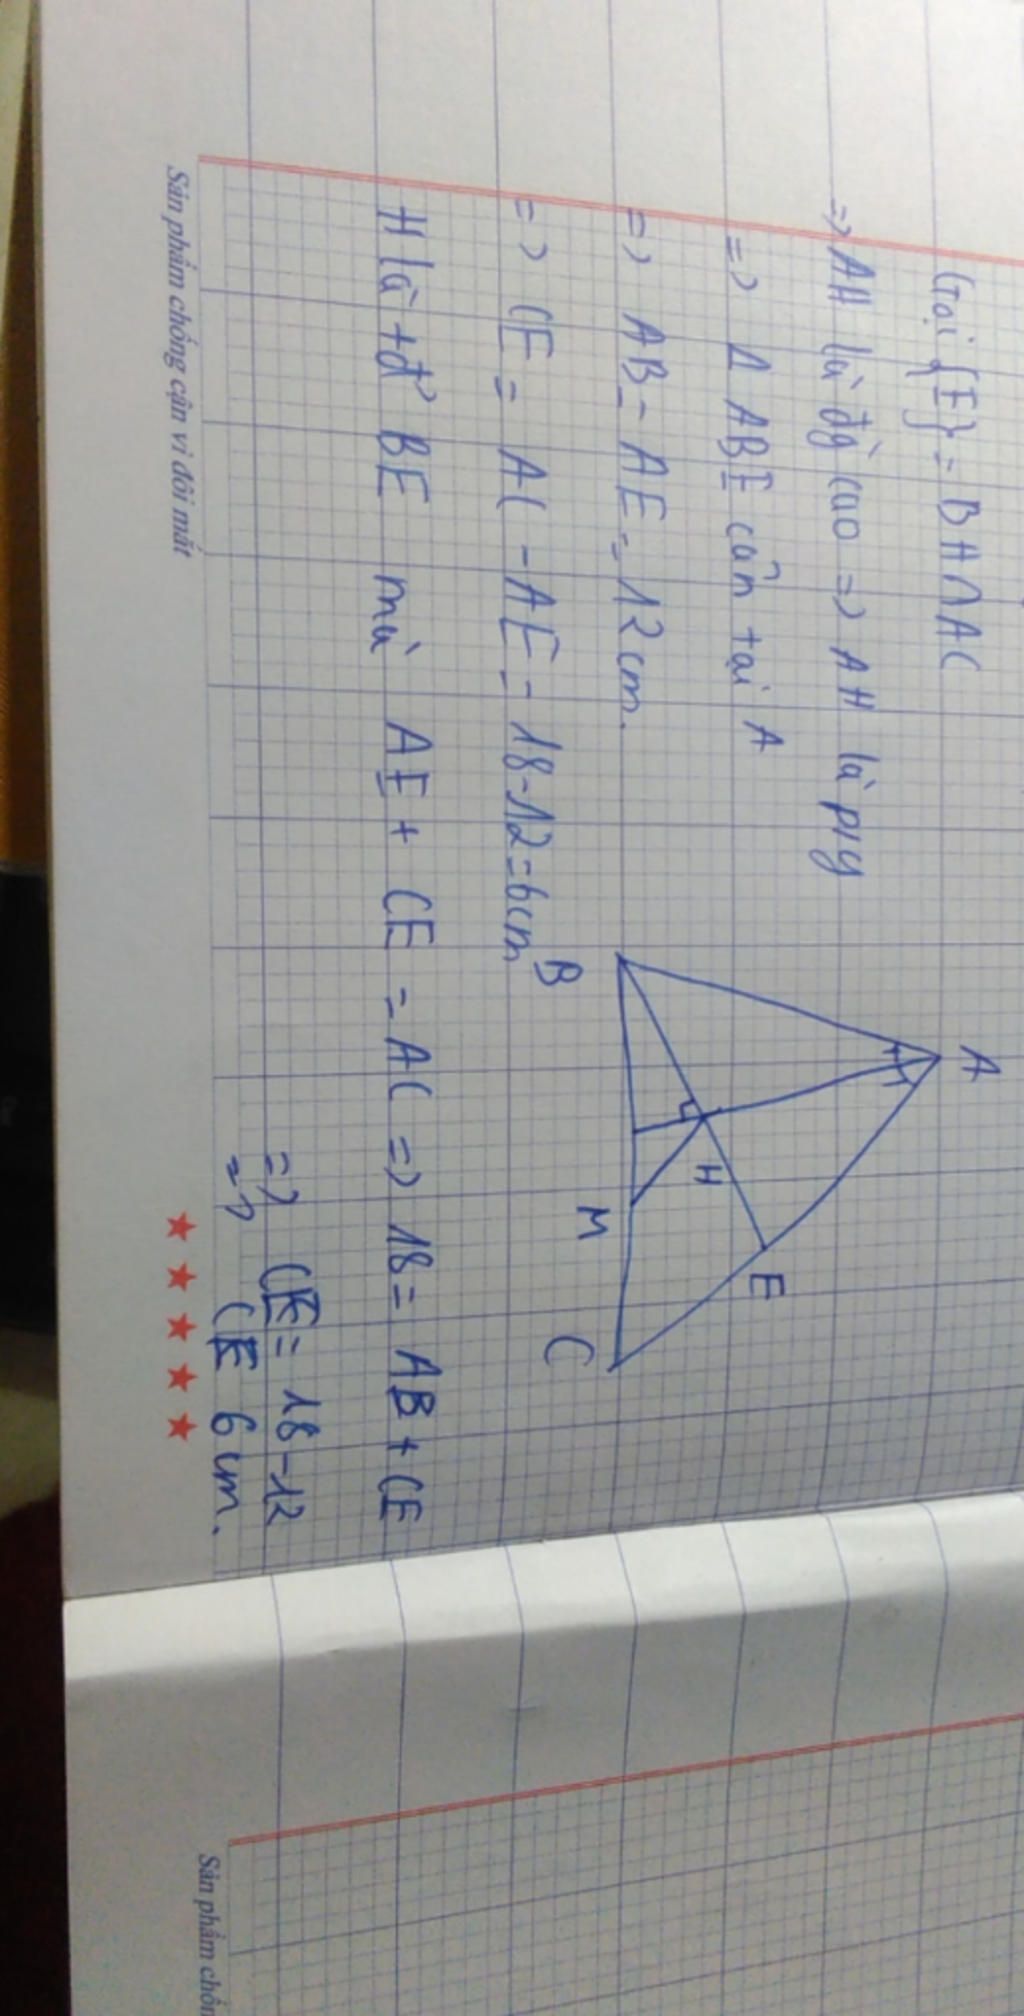 Gọi {E} = BH ∩ AC
=> AH là đg cao => AH là p/g
=> Δ ABE cân tại A
=> AB = AE = 12cm.
=> CE = AC - AE = 18-12=6cm
H là tđ BE mà AE + CE = AC => 18 = AB + CE
=> CE = 18-12
=> CE 6cm.
A
B
H
E
M
C
Sản phẩm chống cận vì đôi mắt
Sản phẩm chốn